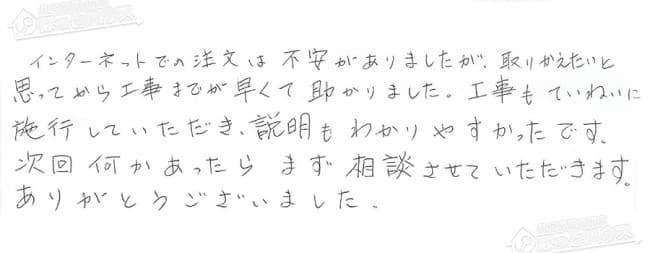 インターネットでの注文は不安がありましたが、取りかえたいと
思ってから工事までが早くて助かりました。工事もていねいに
施行していただき、説明もわかりやすかったです。
次回何かあったらまず相談させていただきます。
ありがとうございました。